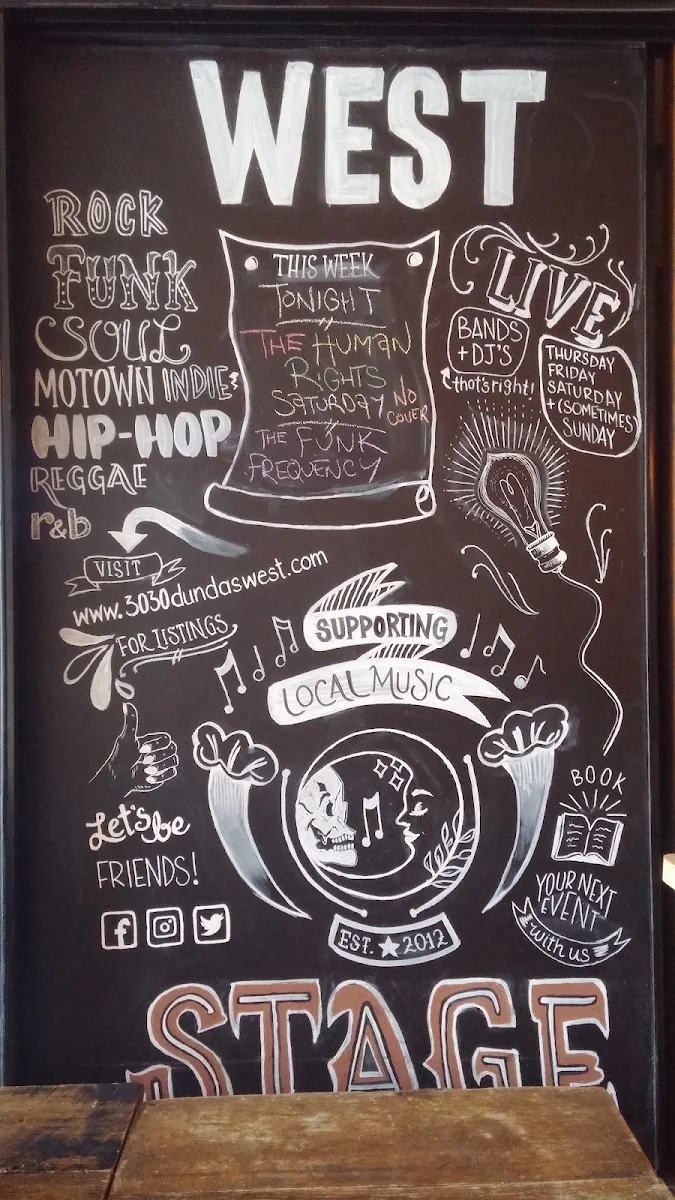 WEST
ROCK
FUNK
SOUL
MOTOWN INDIE
HIP-HOP
REGGAE
r&b
THIS WEEK
TONIGHT
THE HUMAN
RIGHTS
SATURDAY
NO
COVER
THE FUNK
FREQUENCY
LIVE
BANDS
+ DJ'S
that's right!
THURSDAY
FRIDAY
SATURDAY
+(SOMETIMES
SUNDAY
VISIT
www.3030dundaswest.com
FOR LISTINGS
SUPPORTING
LOCAL MUSIC
Let's be
FRIENDS!
f
EST. ★ 2012
BOOK
YOUR NEXT
EVENT
with us
STAGE